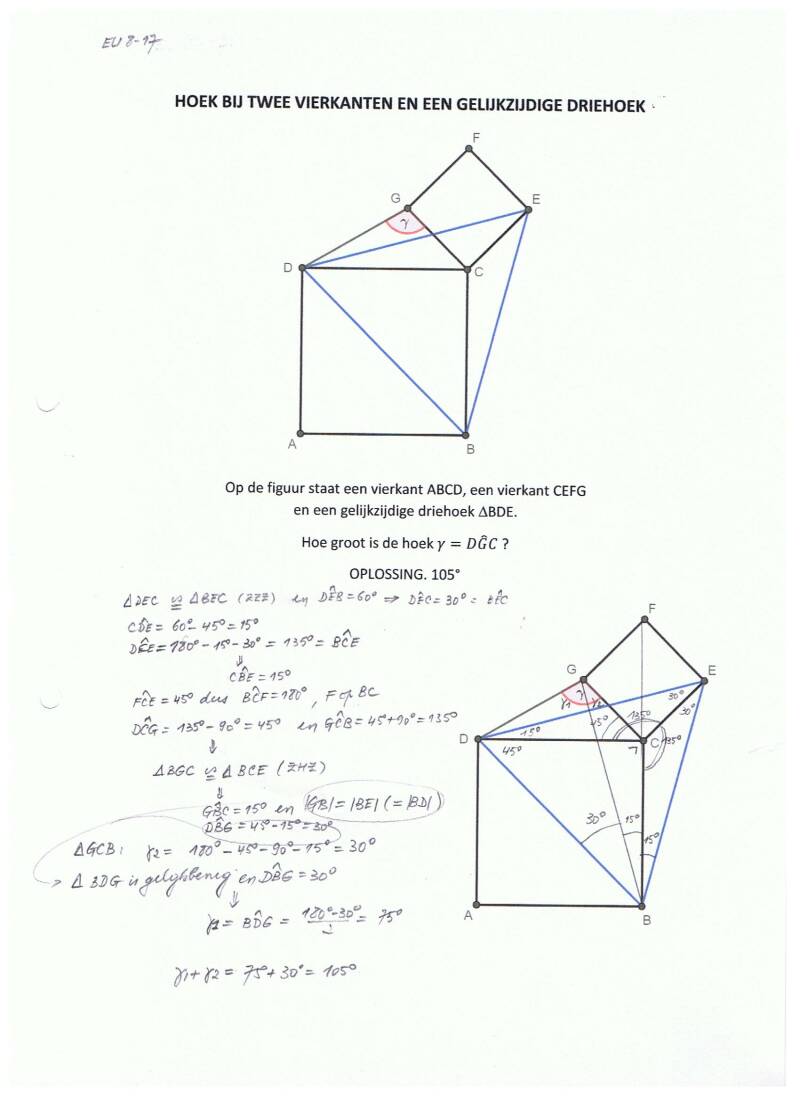 EU 8-17
HOEK BIJ TWEE VIERKANTEN EN EEN GELIJKZIJDIGE DRIEHOEK
F
G
E
γ
D
C
A
B
Op de figuur staat een vierkant ABCD, een vierkant CEFG
en een gelijkzijdige driehoek ΔBDE.
Hoe groot is de hoek γ = DĜC ?
OPLOSSING. 105°
Δ DEC ≅ Δ BEC (ZZZ) en DÊB = 60° ⇒ DÊC = 30° = BÊC
CD̂E = 60° - 45° = 15°
DĈE = 180° - 15° - 30° = 135° = BĈE
⇓
CB̂E = 15°
FĈE = 45° dus BĈF = 180° , F op BC
DĈG = 135° - 90° = 45° en GĈB = 45° + 90° = 135°
⇓
Δ BGC ≅ Δ BCE (ZHZ)
⇓
GB̂C = 15° en |GB| = |BE| (= |BD|)
DB̂G = 45° - 15° = 30°
ΔGCB: γ2 = 180° - 45° - 90° - 15° = 30°
→ Δ BDG is gelijkbenig en DB̂G = 30°
⇓
γ1 = BD̂G = (180° - 30°)/2 = 75°
γ1 + γ2 = 75° + 30° = 105°
F
G
E
γ
γ1
γ2
30°
30°
45°
135°
15°
D
C
135°
45°
30°
15°
15°
A
B